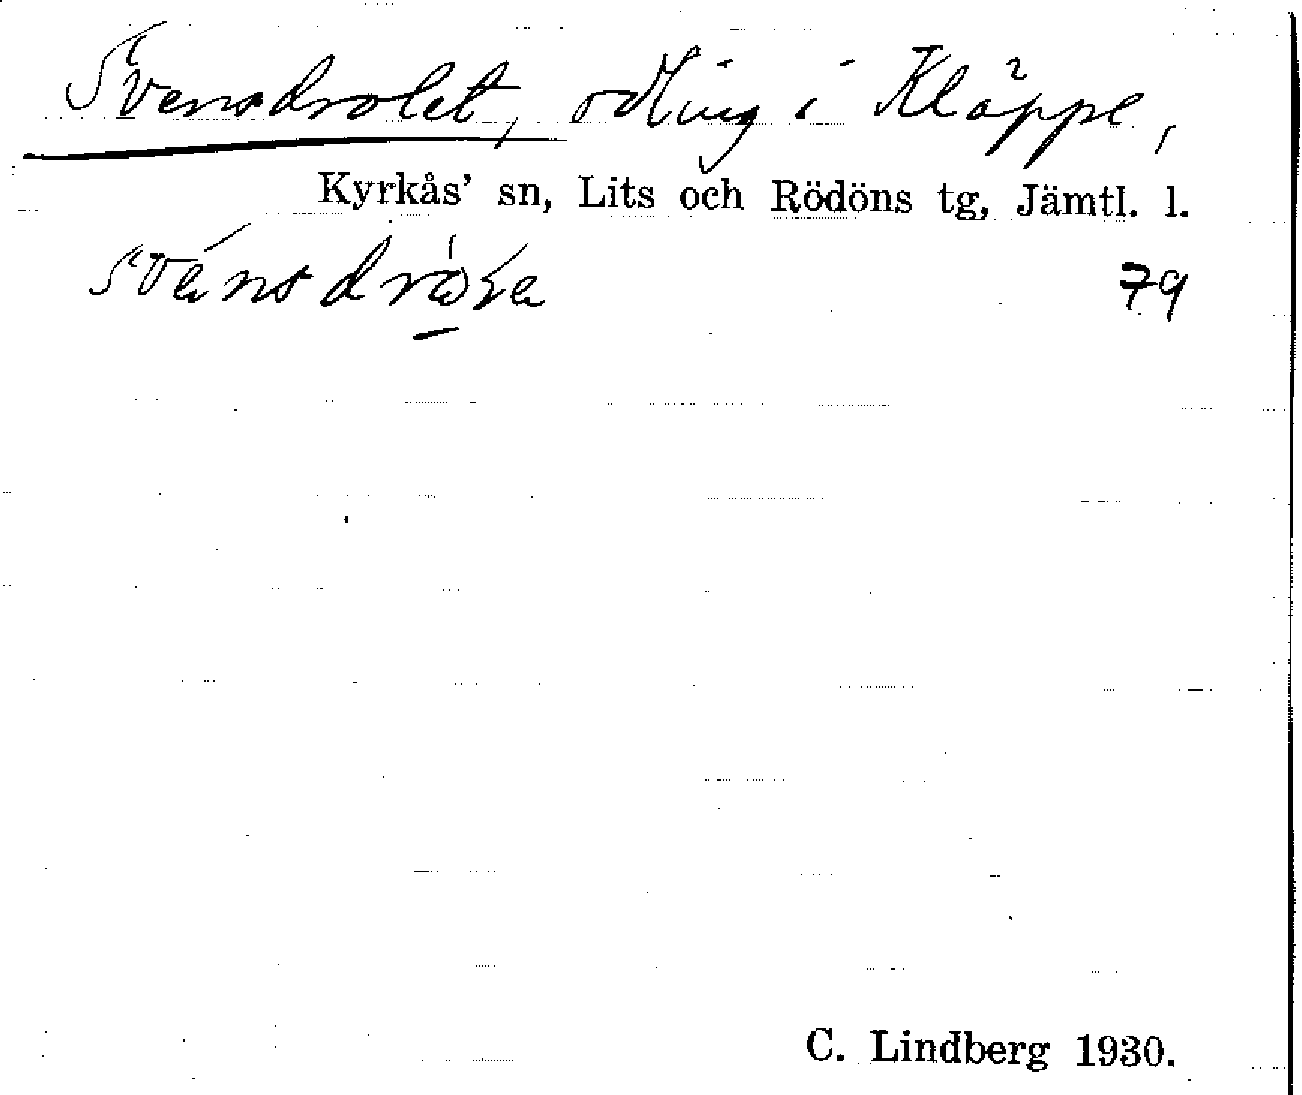 Svensdrolet, odling i Kläppe,
Kyrkås' sn, Lits och Rödöns tg, Jämtl. l.
79
C. Lindberg 1930.